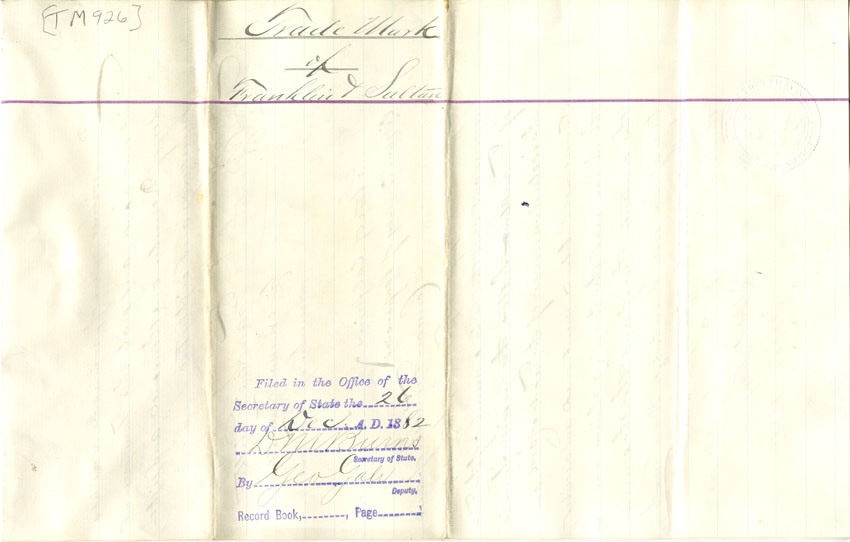 [TM 926]
Trade Mark
of
Franklin & Sultan
Filed in the Office of the
Secretary of State the 26
day of Dec. A. D. 1882
D M Burns
Secretary of State.
By Geo
Deputy.
Record Book, , Page